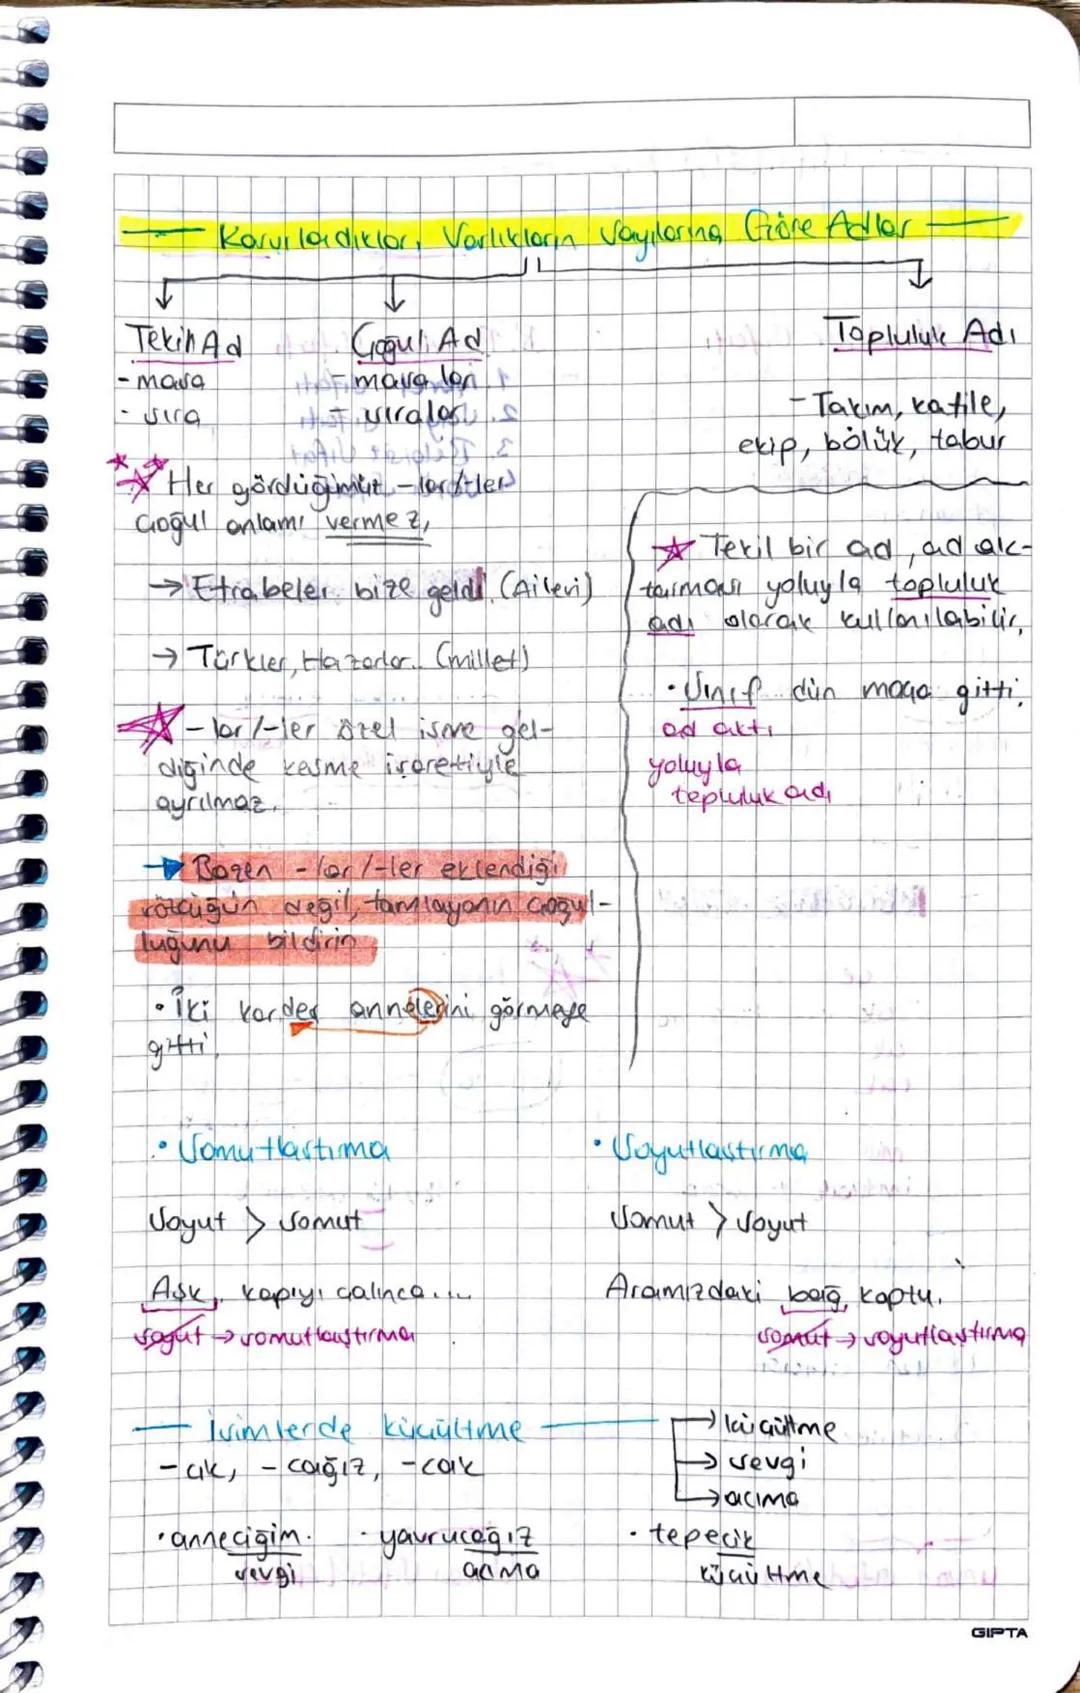 Karşıladıkları Varlıkların Sayılarına Göre Adlar
Tekil Ad
- masa
- sıra
Çoğul Ad
- masalar
- sıralar
Topluluk Adı
- Takım, kafile,
ekip, bölük, tabur
Her gördüğümüz -lar/-ler
çoğul anlamı vermez,
→ Efrabeler bize geldi. (Ailesi)
→ Türkler, Hazarlar.. (millet)
-lar/-ler özel isme gel-
diğinde kesme işaretiyle
ayrılmaz.
→ Bazen -lar/-ler eklendiği
sözcüğün değil, tamlayanın çoğul-
luğunu bildirir
• İki kardeş annelerini görmeye
gitti.
Tekil bir ad, ad ak-
tarması yoluyla topluluk
adı olarak kullanılabilir.
• Sınıf dün maça gitti.
ad aktı
yoluyla
topluluk adı
• Somutlaştırma
Soyut > Somut
Aşk, kapıyı çalınca....
soyut → somutlaştırma
• Soyutlaştırma
Somut > Soyut
Aramızdaki bağ koptu.
somut → soyutlaştırma
İsimlerde küçültme
→ küçültme
→ sevgi
→ acıma
-cık, -cağız, -cak
• anneciğim.
sevgi
• yavrucağız
acıma
• tepecik
küçültme
GIPTA